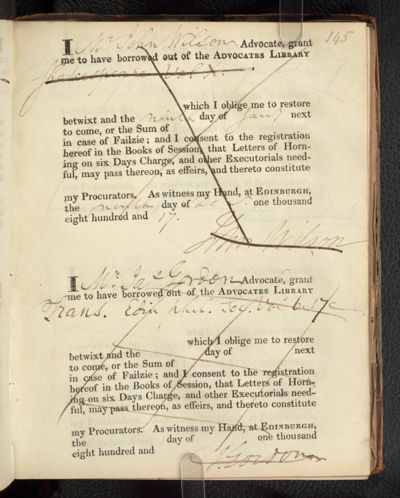 145
I Mr John Wilson Advocate, grant
me to have borrowed out of the ADVOCATES LIBRARY
Shakespeare Vol X.
which I oblige me to restore
betwixt and the ninth day of Jany next
to come, or the Sum of
in case of Failzie; and I consent to the registration
hereof in the Books of Session, that Letters of Horn-
ing on six Days Charge, and other Executorials need-
ful, may pass thereon, as effeirs, and thereto constitute
my Procurators. As witness my Hand, at EDINBURGH,
the ninth day of Dec. one thousand
eight hundred and 17.
John Wilson
I Mr Jas Gordon Advocate, grant
me to have borrowed out of the ADVOCATES LIBRARY
Trans. Edin Soc. Vol 6.
which I oblige me to restore
betwixt and the day of next
to come, or the Sum of
in case of Failzie; and I consent to the registration
hereof in the Books of Session, that Letters of Horn-
ing on six Days Charge, and other Executorials need-
ful, may pass thereon, as effeirs, and thereto constitute
my Procurators. As witness my Hand, at EDINBURGH,
the day of one thousand
eight hundred and
J. Gordon